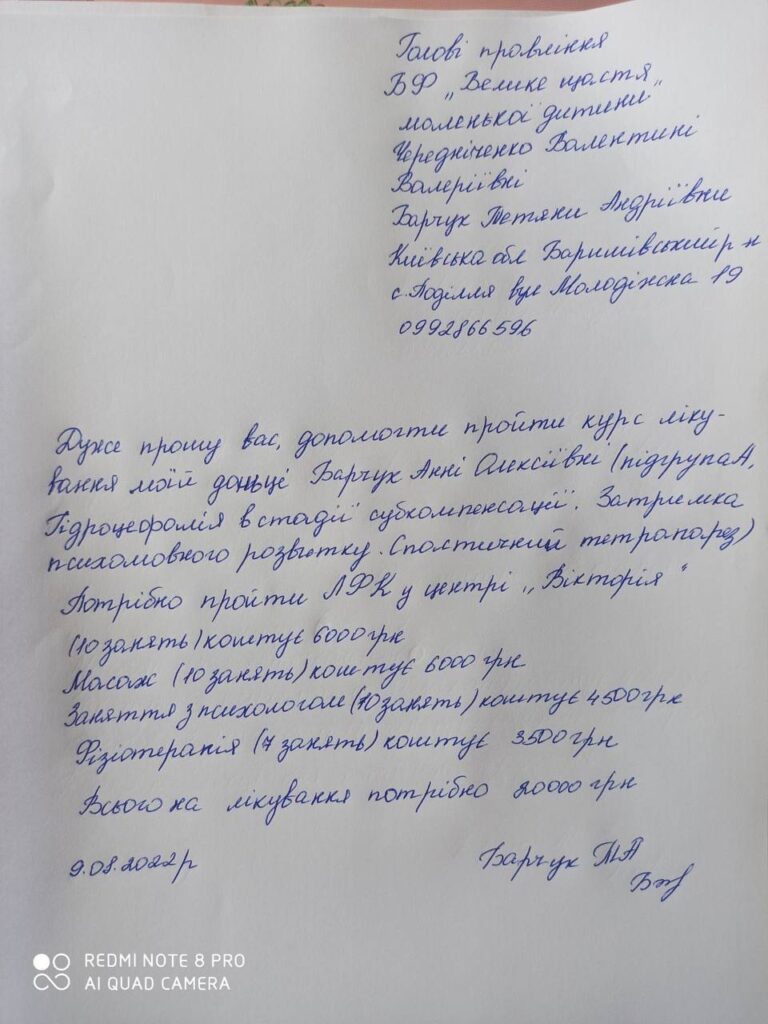 Голові правління
БФ „Велике щастя
маленької дитини"
Чередніченко Валентині
Валеріївні
Барчук Тетяни Андріївни
Київська обл Баришівський р-н
с. Поділля вул Молодіжна 19
0992866596
Дуже прошу вас, допомогти пройти курс ліку-
вання моїй доньці Барчук Анні Олексіївні (підгрупа А,
Гідроцефалія в стадії субкомпенсації. Затримка
психомовного розвитку. Спастичний тетрапарез)
Потрібно пройти ЛФК у центрі „Вікторія"
(10 занять) коштує 6000 грн
Масаж (10 занять) коштує 6000 грн
Заняття з психологом (10 занять) коштує 4500 грн
Фізіотерапія (7 занять) коштує 3500 грн
Всього на лікування потрібно 20000 грн
9.08.2022 р
Барчук ТА
REDMI NOTE 8 PRO
AI QUAD CAMERA